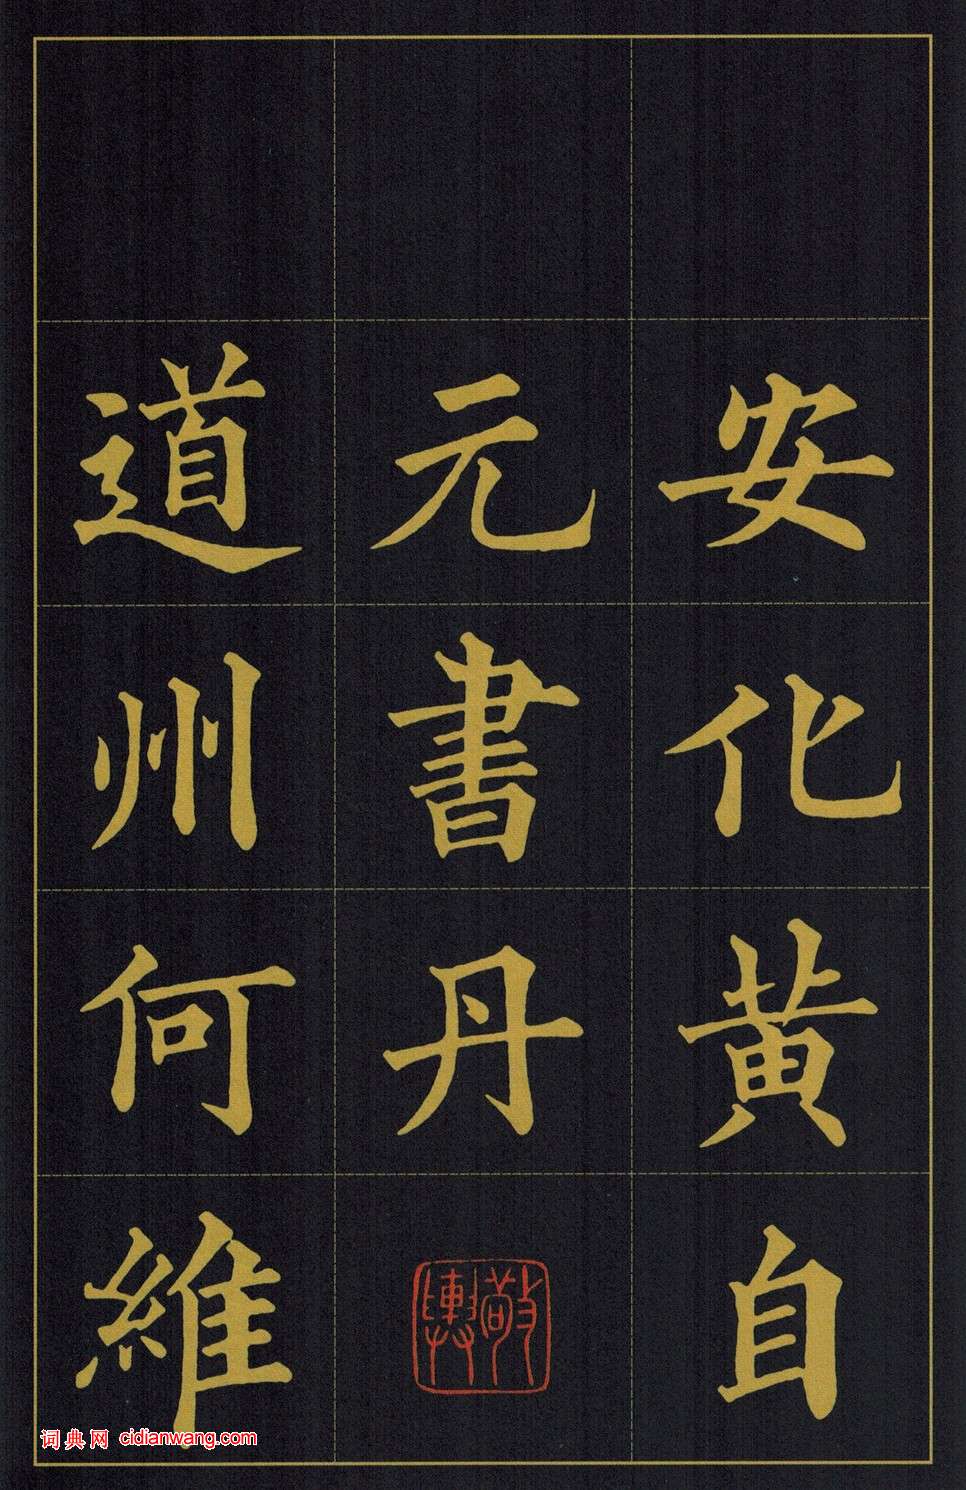 安化黄自
元書丹
敬輿
道州何維
词典网 cidianwang.com